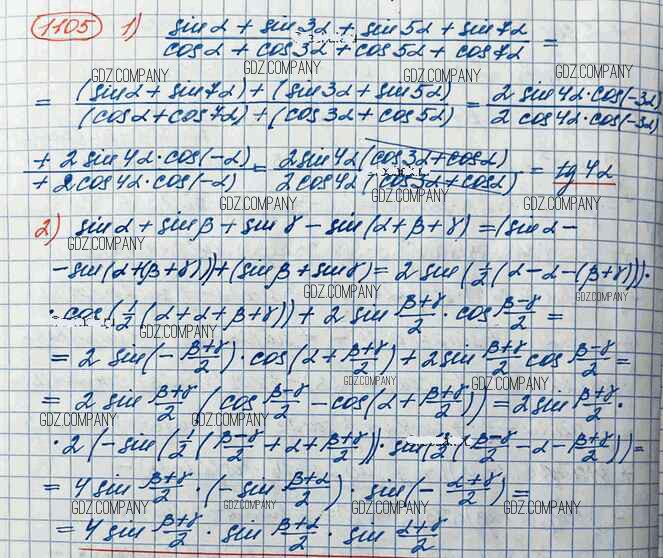 1105 1) (sin α + sin 3α + sin 5α + sin 7α)/(cos α + cos 3α + cos 5α + cos 7α) =
GDZ.COMPANY GDZ.COMPANY GDZ.COMPANY GDZ.COMPANY
= ((sin α + sin 7α) + (sin 3α + sin 5α))/((cos α + cos 7α) + (cos 3α + cos 5α)) = (2 sin 4α · cos(-3α)/(2 cos 4α · cos(-3α)
GDZ.COMPANY
(+ 2 sin 4α · cos(-α))/(+ 2 cos 4α · cos(-α)) = (2 sin 4α (cos 3α + cos α))/(2 cos 4α (cos 3α + cos α)) = tg 4α
GDZ.COMPANY GDZ.COMPANY GDZ.COMPANY
2) sin α + sin β + sin γ - sin (α + β + γ) = (sin α -
GDZ.COMPANY
- sin (α + (β + γ))) + (sin β + sin γ) = 2 sin (1/2 (α - α - (β + γ))) ·
GDZ.COMPANY GDZ.COMPANY
· cos (1/2 (α + α + β + γ)) + 2 sin (β+γ)/2 · cos (β-γ)/2 =
GDZ.COMPANY
= 2 sin (- (β+γ)/2) · cos (α + (β+γ)/2) + 2 sin (β+γ)/2 cos (β-γ)/2 =
GDZ.COMPANY GDZ.COMPANY
= 2 sin (β+γ)/2 (cos (β-γ)/2 - cos (α + (β+γ)/2)) = 2 sin (β+γ)/2 ·
GDZ.COMPANY GDZ.COMPANY GDZ.COMPANY
· 2 (- sin (1/2 ((β-γ)/2 + α + (β+γ)/2)) · sin (1/2 ((β-γ)/2 - α - (β+γ)/2)) =
= 4 sin (β+γ)/2 · (- sin (β+α)/2) · sin (- (α+γ)/2) =
GDZ.COMPANY GDZ.COMPANY GDZ.COMPANY GDZ.COMPANY
= 4 sin (β+γ)/2 · sin (β+α)/2 · sin (α+γ)/2